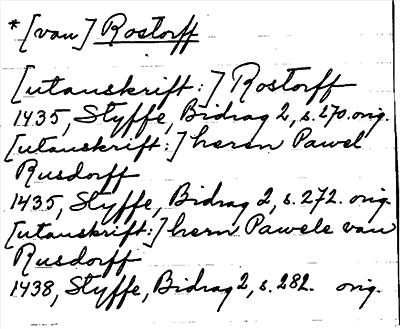 * [van] Rostorff
[utanskrift:] Rostorff
1435, Styffe, Bidrag 2, s. 270. orig.
[utanskrift:] herrn Pawel
Rusdorff
1435, Styffe, Bidrag 2, s. 272. orig.
[utanskrift:] hern Pawele van
Rusdorff
1438, Styffe, Bidrag 2, s. 282. orig.